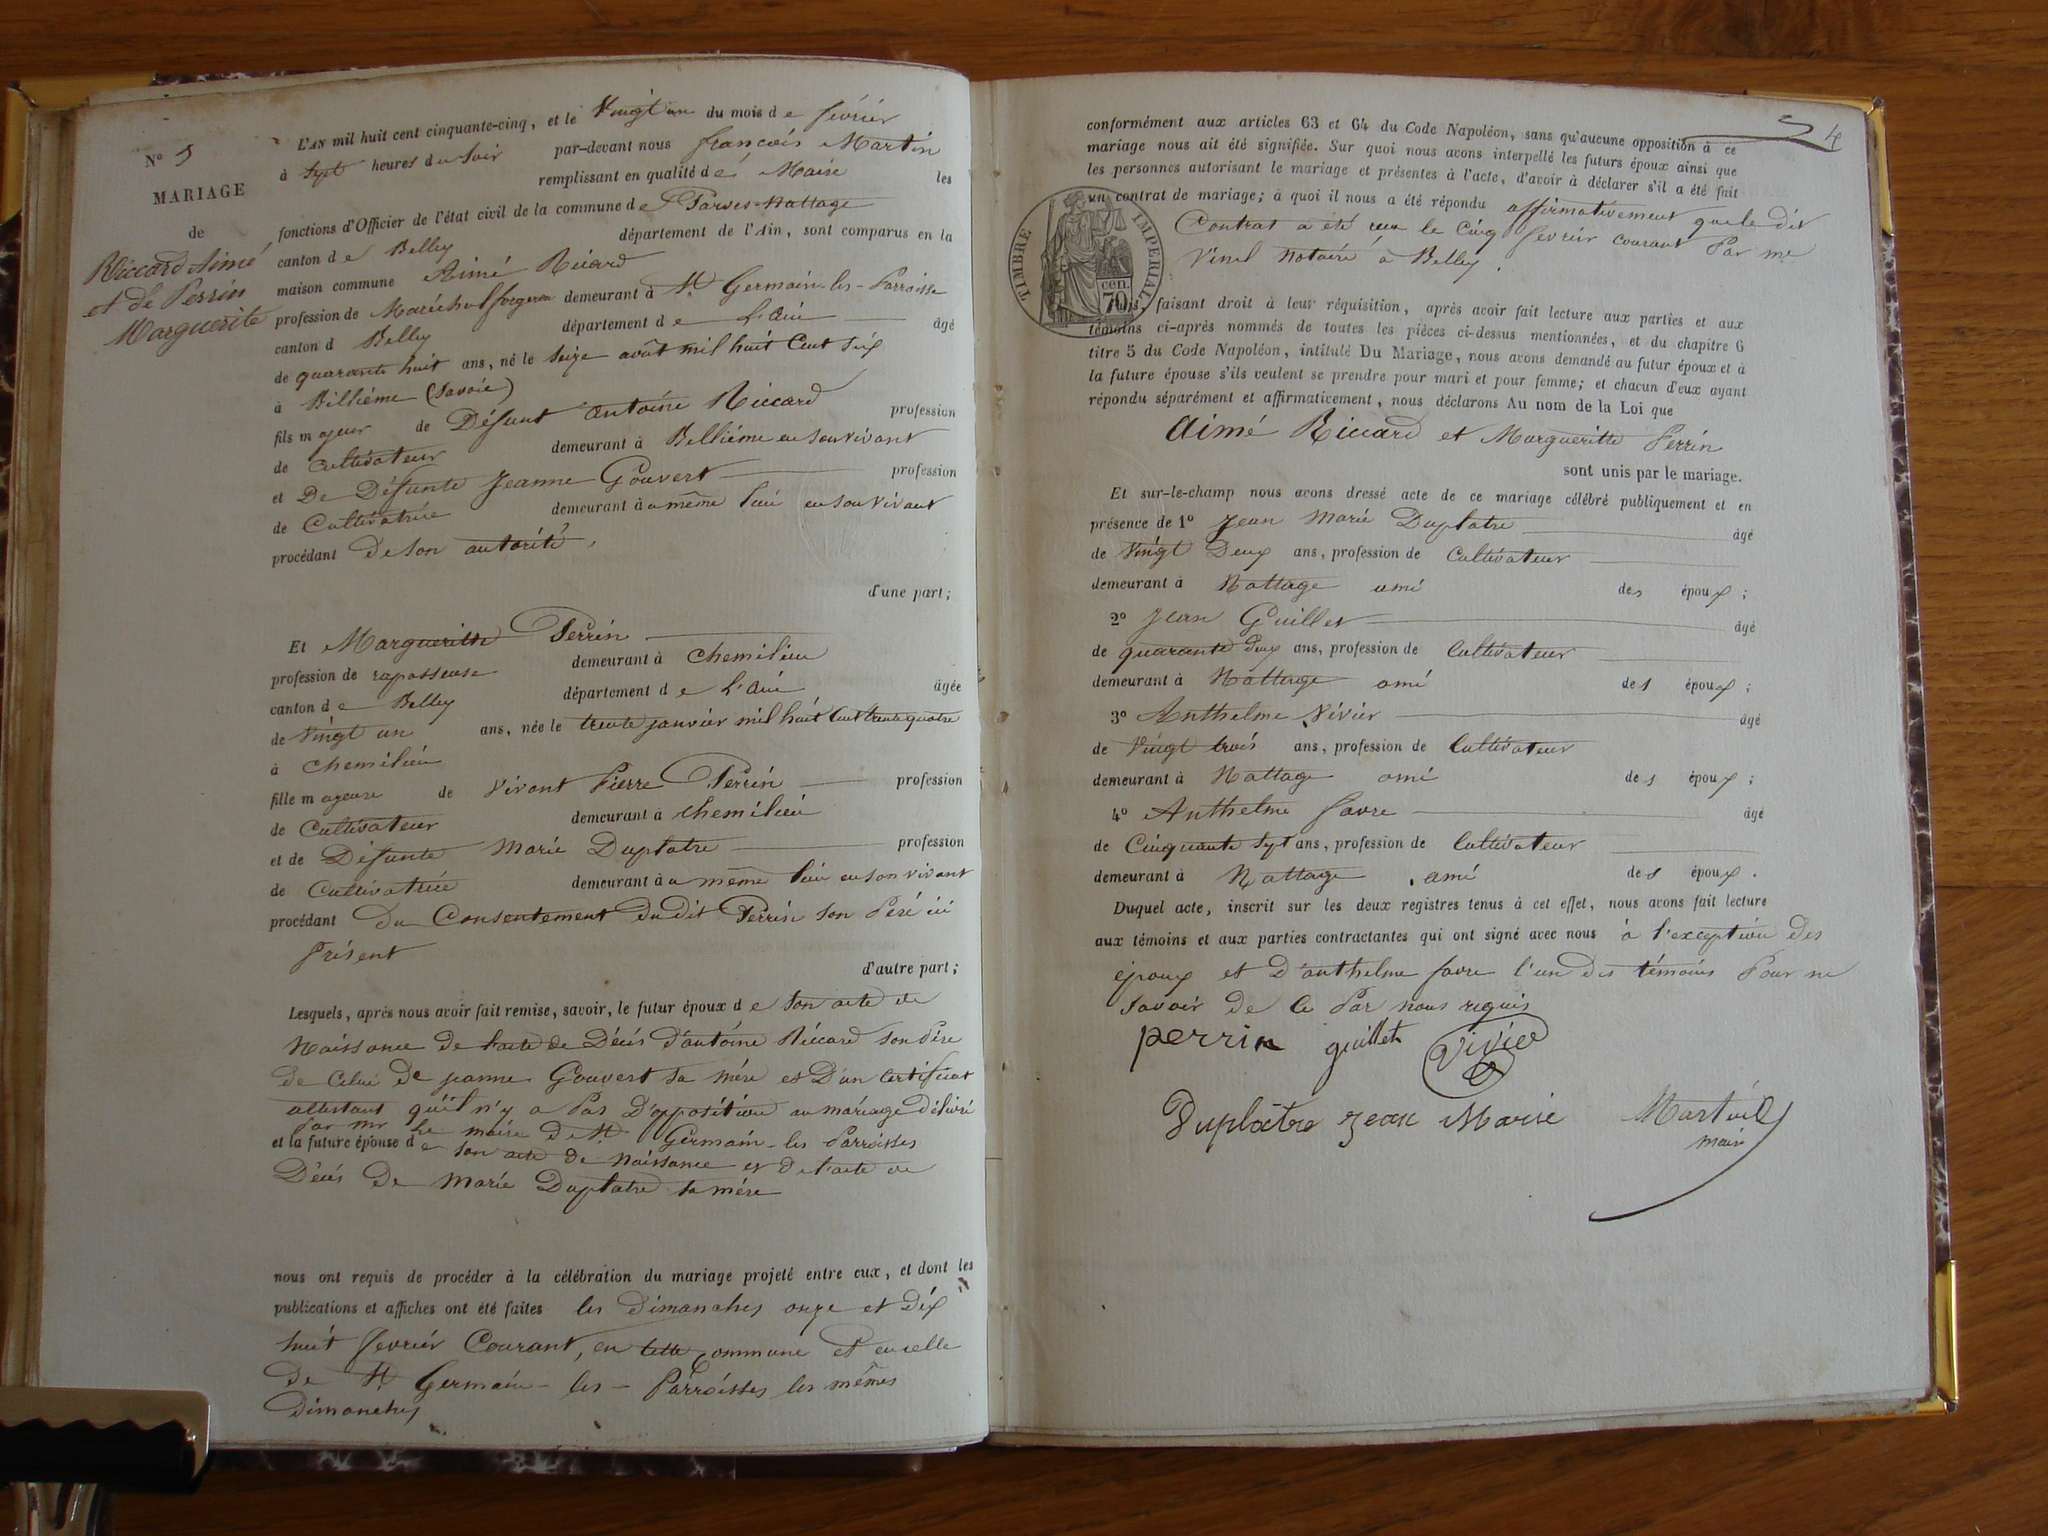 N° 5
MARIAGE
de
Riccard Aimé
et de Perrin
Marguerite
L'AN mil huit cent cinquante-cinq, et le Vingt un du mois de février
à sept heures du soir par-devant nous françois Martin
remplissant en qualité de Maire les
fonctions d'Officier de l'état civil de la commune de Parves-Nattage
canton de Belley département de l'Ain, sont comparus en la
maison commune Aimé Riccard
profession de Maréchal forgeron demeurant à St Germain-les-Parroisse
canton d Belley département de L'Ain âgé
de quarante huit ans, né le seize août mil huit Cent six
à Billiéme (Savoie)
fils majeur de Défunt antoine Riccard profession
de Cultivateur demeurant à Belliéme en son vivant
et De Défunte Jeanne Gouvert profession
de Cultivatrice demeurant au même lieu en son vivant
procédant De son autorité,
d'une part;
Et Margueritte Perrin
profession de rapasseuse demeurant à Chemilieu
canton de Belley département de L'Ain âgée
de Vingt un ans, née le trente janvier mil huit Cent trente quatre
à Chemilieu
fille majeure de Vivant Pierre Perrin profession
de Cultivateur demeurant à Chemilieu
et de Défunte Marie Duplatre profession
de Cultivatrice demeurant au même lieu en son vivant
procédant Du Consentement du dit Perrin son Père ici
Présent
d'autre part;
Lesquels, après nous avoir fait remise, savoir, le futur époux de son acte de
Naissance de l'acte de Décés d'antoine Riccard son Père
de Celui de jeanne Gouvert sa mére et D'un Certificat
attestant qu'il n'y a Pas D'opposition au mariage délivré
Par mr le maire De St Germain-les Parroisses
et la future épouse de son acte de Naissance et de l'acte de
Décés De Marie Duplatre sa mére
nous ont requis de procéder à la célébration du mariage projeté entre eux, et dont les
publications et affiches ont été faites les Dimanches onze et Dix
huit fevrier Courant, en cette Commune et en celle
De St Germain-les-Parroisses les mêmes
Dimanches
4
conformément aux articles 63 et 64 du Code Napoléon, sans qu'aucune opposition à ce
mariage nous ait été signifiée. Sur quoi nous avons interpellé les futurs époux ainsi que
les personnes autorisant le mariage et présentes à l'acte, d'avoir à déclarer s'il a été fait
un contrat de mariage; à quoi il nous a été répondu affirmativement que le dit
Contrat a été reçu le Cinq fevrier courant Par me
Vinel Notaire à Belley.
TIMBRE IMPERIAL
70 cen.
Puis, faisant droit à leur réquisition, après avoir fait lecture aux parties et aux
témoins ci-après nommés de toutes les pièces ci-dessus mentionnées, et du chapitre 6
titre 5 du Code Napoléon, intitulé Du Mariage, nous avons demandé au futur époux et à
la future épouse s'ils veulent se prendre pour mari et pour femme; et chacun d'eux ayant
répondu séparément et affirmativement, nous déclarons Au nom de la Loi que
Aimé Riccard et Margueritte Perrin
sont unis par le mariage.
Et sur-le-champ nous avons dressé acte de ce mariage célébré publiquement et en
présence de 1° Jean Marie Duplatre âgé
de Vingt Deux ans, profession de Cultivateur
demeurant à Nattage ami des époux;
2° Jean Guillet âgé
de quarante deux ans, profession de Cultivateur
demeurant à Nattage ami des époux;
3° Anthelme Vivier âgé
de Vingt trois ans, profession de Cultivateur
demeurant à Nattage ami des époux;
4° Anthelme favre âgé
de Cinquante Sept ans, profession de Cultivateur
demeurant à Nattage ami des époux.
Duquel acte, inscrit sur les deux registres tenus à cet effet, nous avons fait lecture
aux témoins et aux parties contractantes qui ont signé avec nous à l'exception des
époux et d'anthelme favre l'un des témoins Pour ne
savoir de Ce Par nous requis
perrin guillet Vivier
Duplâtre Jean Marie Martin
maire